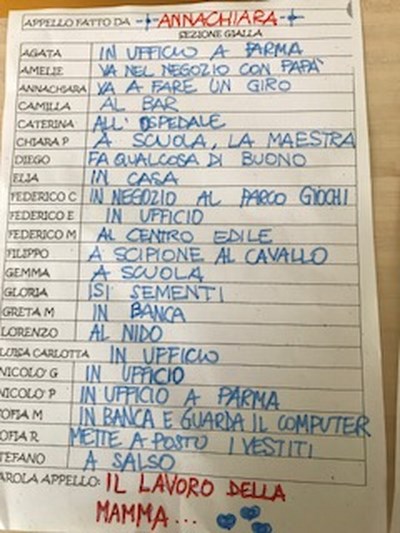 APPELLO FATTO DA ANNACHIARA
SEZIONE GIALLA
AGATA IN UFFICIO A PARMA
AMELIE VA NEL NEGOZIO CON PAPA'
ANNACHIARA VA A FARE UN GIRO
CAMILLA AL BAR
CATERINA ALL' OSPEDALE
CHIARA P A SCUOLA, LA MAESTRA
DIEGO FA QUALCOSA DI BUONO
ELIA IN CASA
FEDERICO C IN NEGOZIO AL PARCO GIOCHI
FEDERICO E IN UFFICIO
FEDERICO M AL CENTRO EDILE
FILIPPO A SCIPIONE AL CAVALLO
GEMMA A SCUOLA
GLORIA ISI SEMENTI
GRETA M IN BANCA
LORENZO AL NIDO
LUISA CARLOTTA IN UFFICIO
NICOLO' G IN UFFICIO
NICOLO' P IN UFFICIO A PARMA
OFIA M IN BANCA E GUARDA IL COMPUTER
OFIA R METTE A POSTO I VESTITI
TEFANO A SALSO
AROLA APPELLO: IL LAVORO DELLA
MAMMA...